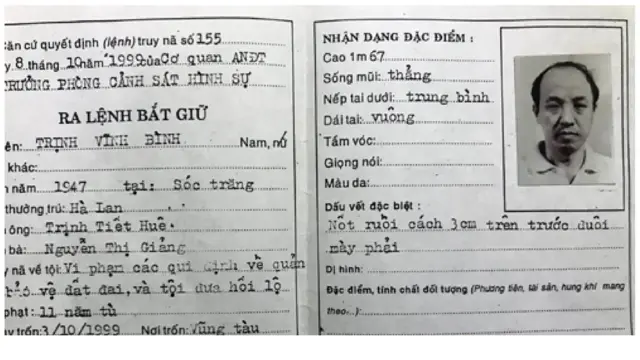 Căn cứ quyết định (lệnh) truy nã số 155
y 8 tháng 10 năm 1999 của Cơ quan ANĐT
TRƯỞNG PHÒNG CẢNH SÁT HÌNH SỰ
RA LỆNH BẮT GIỮ
ên: TRỊNH VĨNH BÌNH Nam, nữ
khác:
năm 1947 tại: Sóc trăng
thường trú: Hà Lan
ông: Trịnh Tiết Huê
bà: Nguyễn Thị Giảng
y nã về tội: Vi phạm các qui định về quản
vệ đất đai, và tội đưa hối lộ
phạt: 11 năm tù
trốn: 3/10/1999 Nơi trốn: Vũng tàu
NHẬN DẠNG ĐẶC ĐIỂM :
Cao 1m 67
Sống mũi: thẳng
Nếp tai dưới: trung bình
Dái tai: vuông
Tầm vóc:
Giọng nói:
Màu da:
Dấu vết đặc biệt :
Nốt ruồi cách 3cm trên trước đuôi
mày phải
Dị hình:
Đặc điểm, tính chất đối tượng (Phương tiện, tài sản, hung khí mang
theo..):